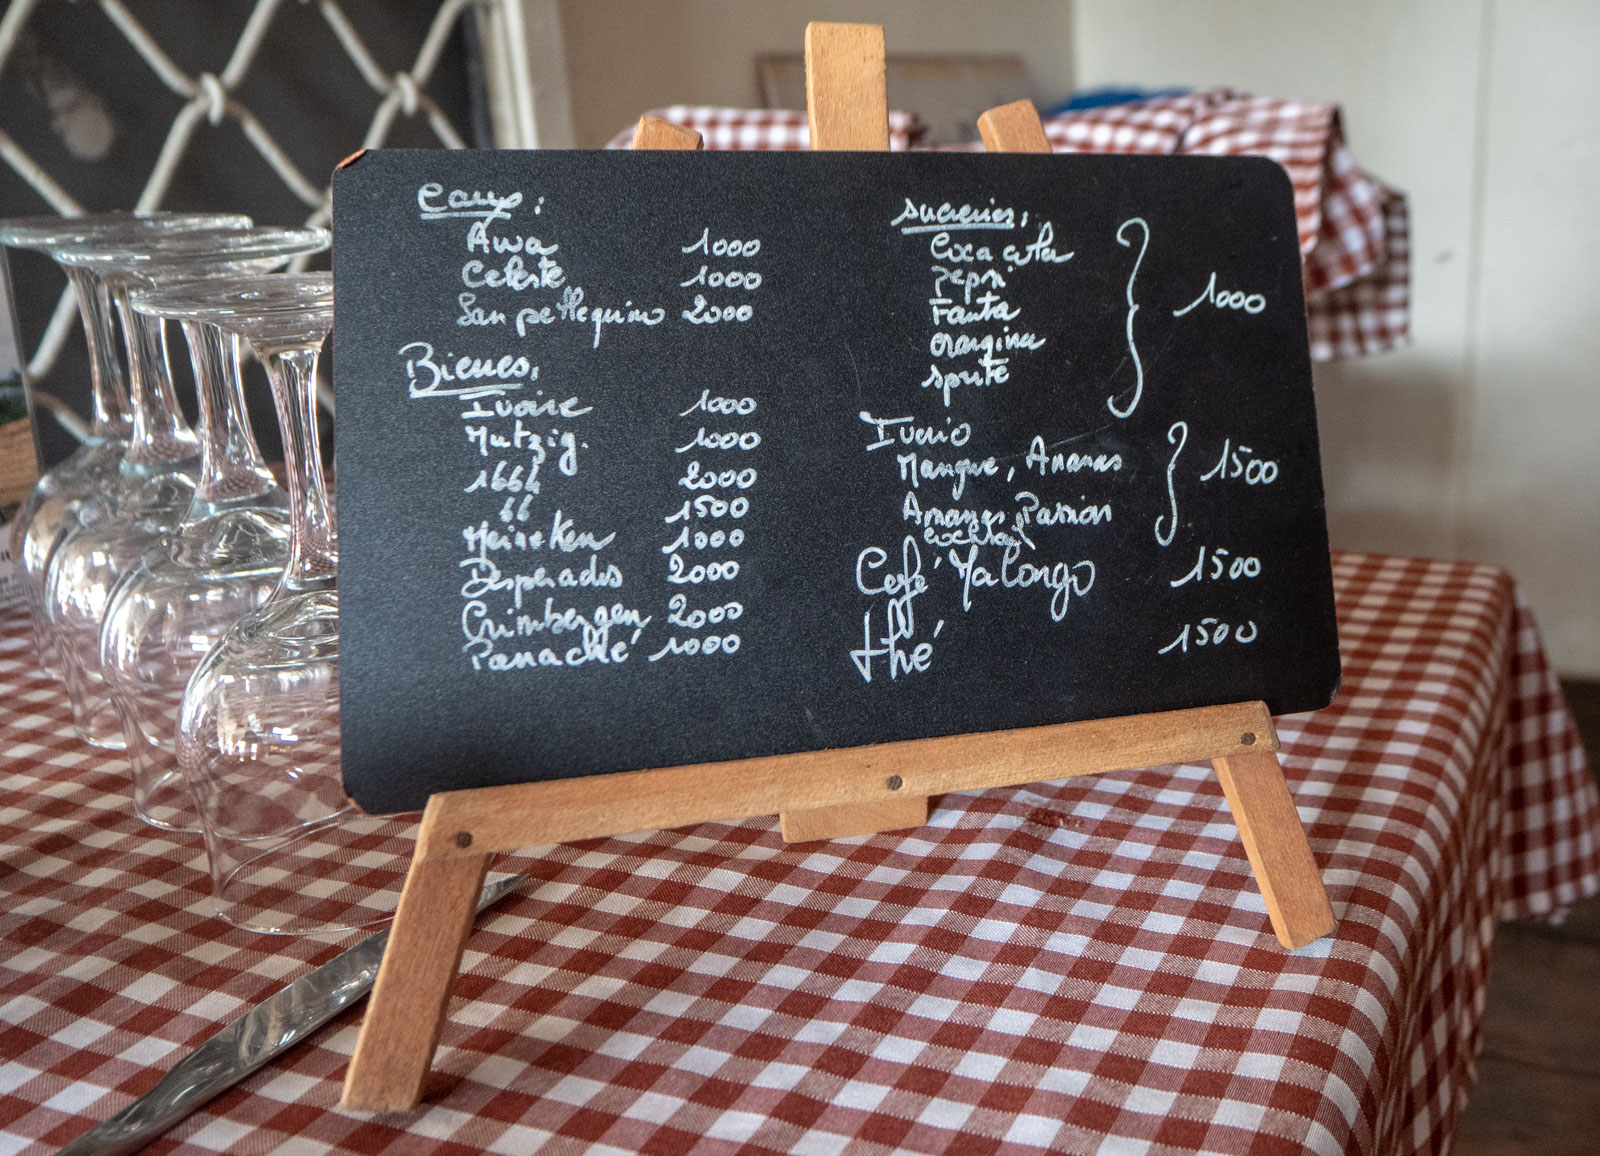 eaux:
Awa 1000
Celeste 1000
San pellegrino 2000
Bieres,
Ivoire 1000
Mutzig. 1000
1664 2000
66 1500
Heineken 1000
Desperados 2000
Grimbergen 2000
Panaché 1000
sucreries:
Coca cola
pepsi
Fanta
orangina
sprite
1000
Ivorio
Mangue, Ananas
Ananas, Passion
cocktail
1500
Café Malongo 1500
thé 1500